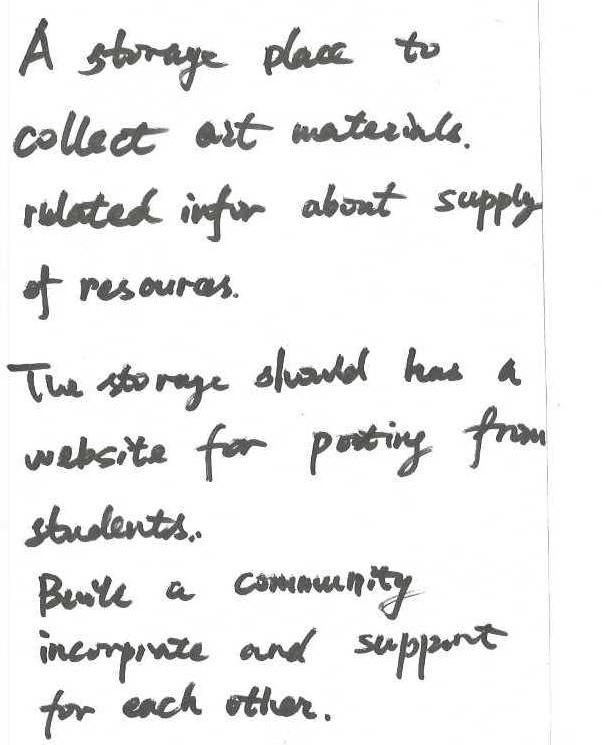 A storage place to
collect art materials.
related infor about supply
of resources.
The storage should has a
website for posting from
students..
Built a community
incorporate and support
for each other.